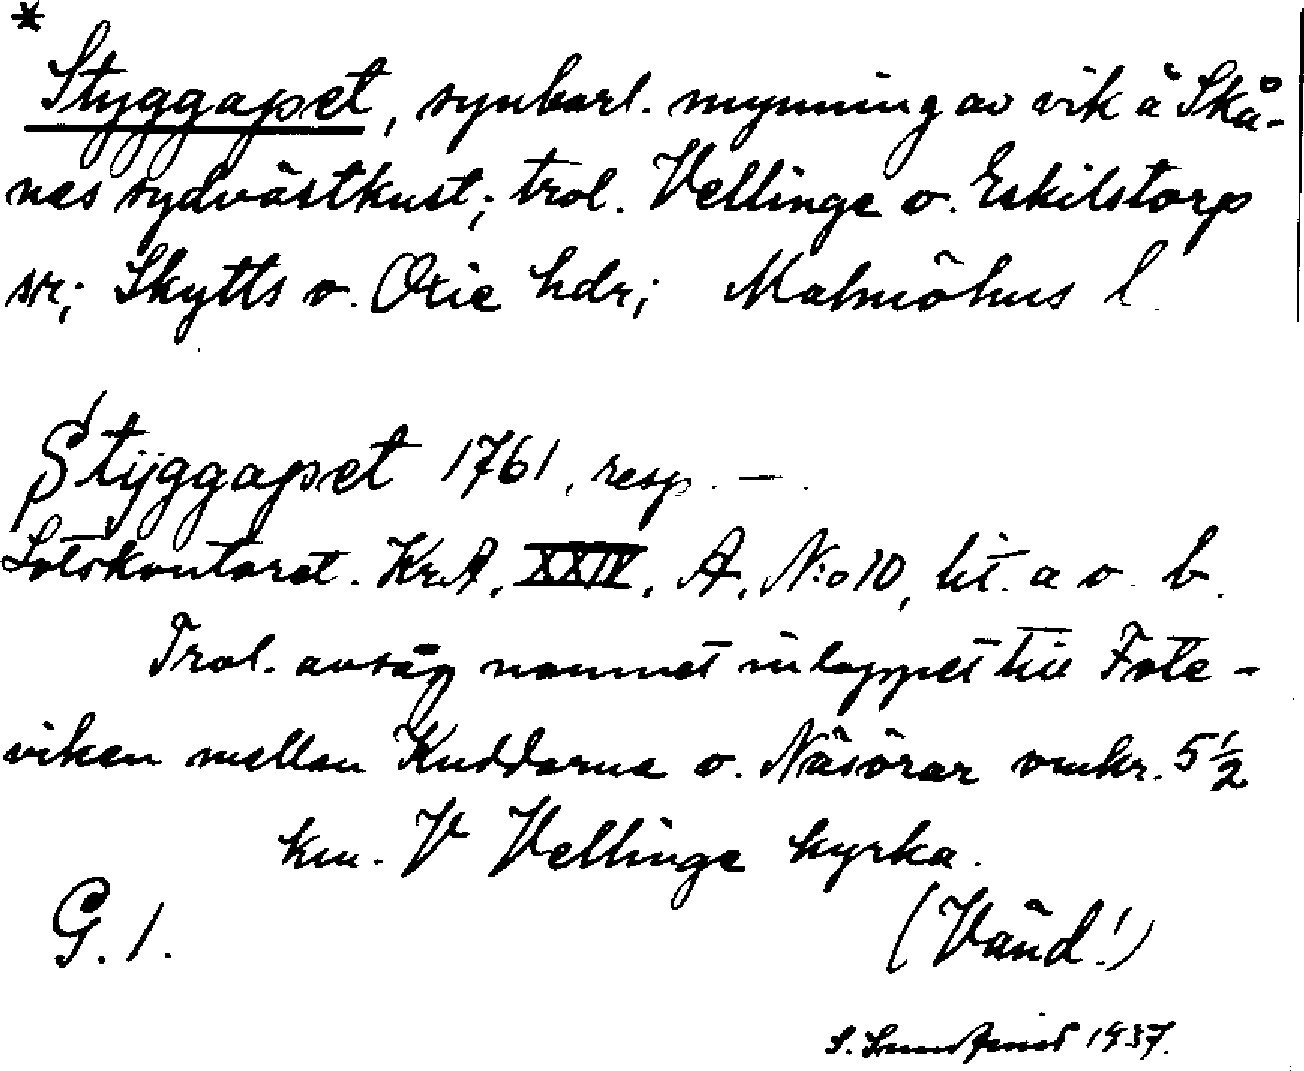 *
Styggapet, synbarl. mynning av vik å Skå-
nes sydvästkust; trol. Vellinge o. Eskilstorp
sr; Skytts o. Oxie hdr; Malmöhus l.
Stÿggapet 1761, resp. —.
Lotskontoret. Kr.A. XXIV. A. N:o 10, lit. a o. b.
Trol. avsåg namnet inloppet till Fote-
viken mellan Kuddarna o. Näsörar omkr. 5 1/2
km. V Vellinge kyrka.
G. 1.
(Vänd!)
S. 1937.